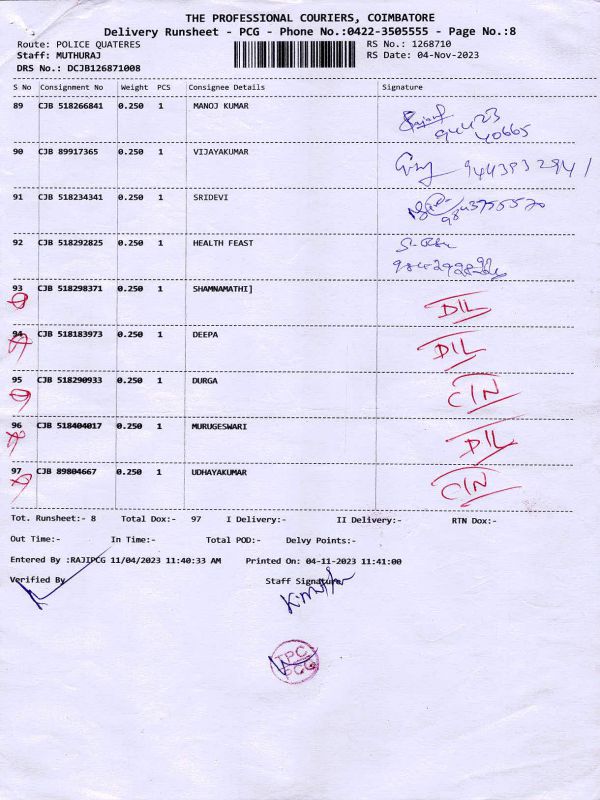 THE PROFESSIONAL COURIERS, COIMBATORE
Delivery Runsheet - PCG - Phone No.:0422-3505555 - Page No.:8
Route: POLICE QUATERES RS No.: 1268710
Staff: MUTHURAJ RS Date: 04-Nov-2023
DRS No.: DCJB126871008
S No Consignment No Weight PCS Consignee Details Signature
89 CJB 518266841 0.250 1 MANOJ KUMAR
94423
40665
90 CJB 89917365 0.250 1 VIJAYAKUMAR
9443932941
91 CJB 518234341 0.250 1 SRIDEVI
92 CJB 518292825 0.250 1 HEALTH FEAST
93 CJB 518298371 0.250 1 SHAMNAMATHI]
DIL
94 CJB 518183973 0.250 1 DEEPA
DIL
95 CJB 518290933 0.250 1 DURGA
CIN
96 CJB 518404017 0.250 1 MURUGESWARI
DIL
97 CJB 89804667 0.250 1 UDHAYAKUMAR
CIN
Tot. Runsheet:- 8 Total Dox:- 97 I Delivery:- II Delivery:- RTN Dox:-
Out Time:- In Time:- Total POD:- Delvy Points:-
Entered By :RAJIPCG 11/04/2023 11:40:33 AM Printed On: 04-11-2023 11:41:00
Verified By Staff Signature
TPC
PCG